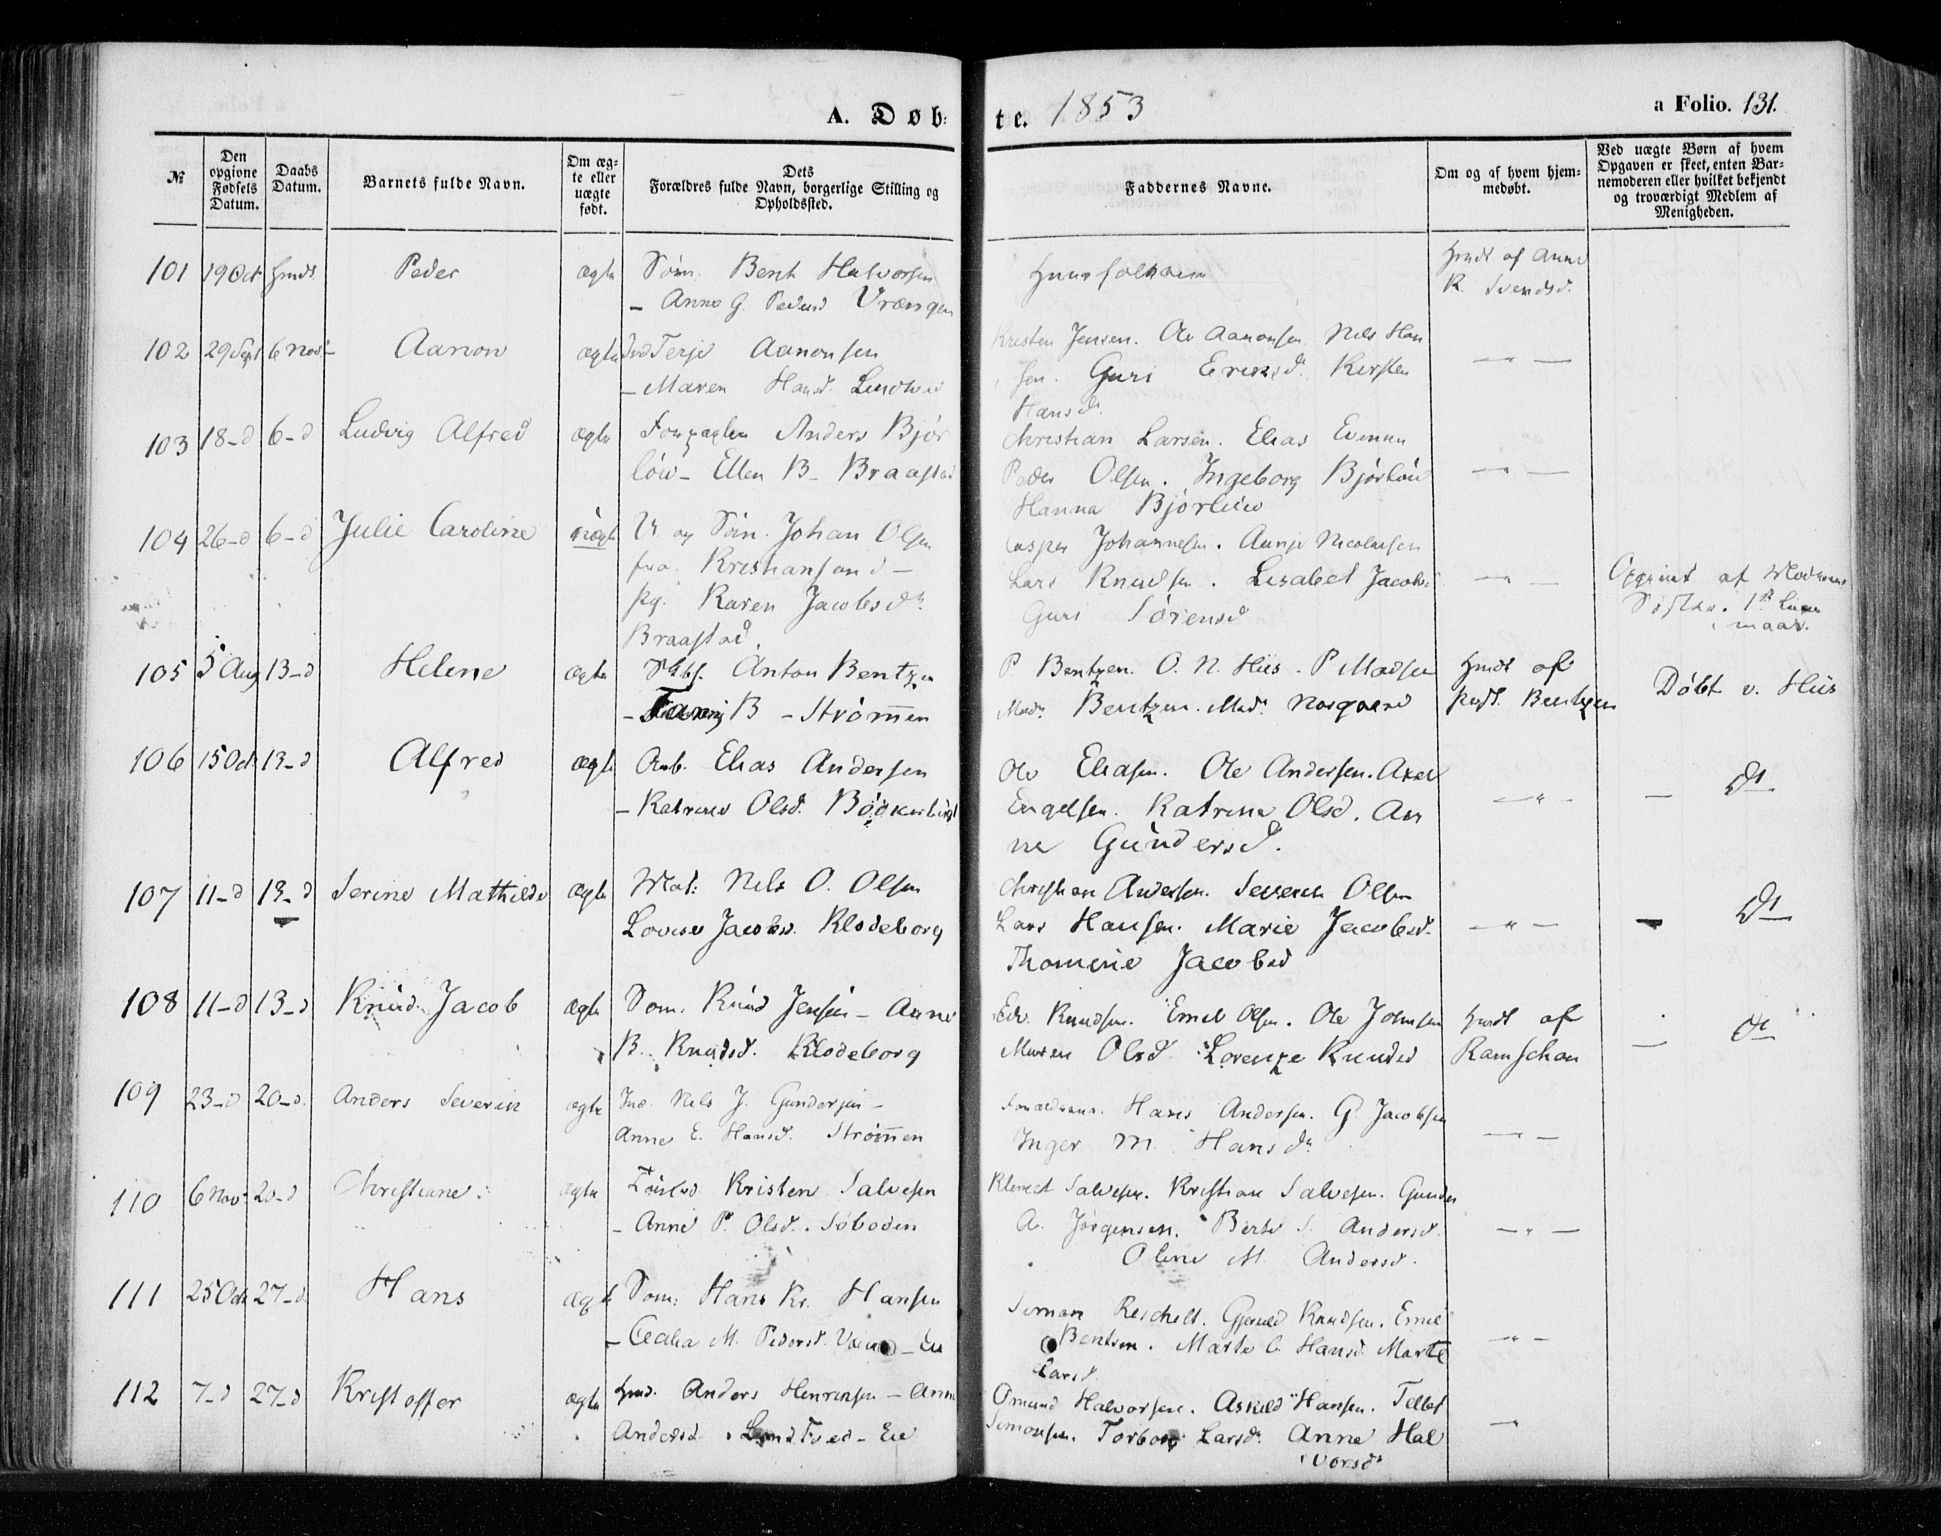 A. Døb-
te. 1853
a Folio. 131.
№
Den opgivne Fødsels Datum.
Daabs Datum.
Barnets fulde Navn.
Om æg-te eller uægte født.
Dets Forældres fulde Navn, borgerlige Stilling og Opholdssted.
Faddernes Navne.
Om og af hvem hjem-medøbt.
Ved uægte Børn af hvem Opgaven er skeet, enten Bar-nemoderen eller hvilket bekjendt og troværdigt Medlem af Menigheden.
101 19 Oct hmdt Peder ægte Søm. Bent Halvorsen
– Anne G. Pedersd Vrængen
hmdt af Anne
K. Svendsd.
102 29 Sept 6 Nov Aanon ægte Ind Terje Aanonsen
– Maren Hansd.
Kristen Jensen. Ole Aanonsen Nils Han
sen. Guri Eriksd. Kirsten
Hansd. –"–
103 18–d 6–d Ludvig Alfred ægte Anders Bjor
löw – Ellen B – Braastad
Christian Larsen. Elias Evensen
Peder Olsen. Ingeborg Bjorlöw
Hanna Bjorlöw –"–
104 26–d 6–d Julie Caroline uægte U. og Søm. Johan Olsen
fra Kristiansand –
pg. Karen Jacobsd.
Braastad.
Casper Johannesen. Aanje Nicolaisen
Lars Knudsen. Lisabet Jacobs
Guri Sørensd –"–
Opgivet af Moderens
Søster. 1ste
maar.
105 5 Aug 13–d Helene ægte Skbf. Anton Bentzen
– Fanny B – Strømmen
P Bentzen. O. N. Hiis. P Madsen
Mad. Bentzen. Mad. Norgaard
hmdt af
Bentzen
Døbt v. Hiis
106 15 Oct 13–d Alfred ægte Arb. Elias Andersen
– Katrine Olsd.
Ole Eliasen. Ole Andersen. Axel
Engelsen. Katrine Olsd. An
ne Gundersd. –"– – dt
107 11–d 13–d Serine Mathilde ægte Mat: Nils O. Olsen
Lovise Jacobsd. Klodeborg
Christian Andersen. Severin Olsen
Lars Hansen. Marie Jacobsd.
Thomine Jacobsd –"– – dt
108 11–d 13–d Knud Jacob ægte Søm. Knud Jensen – Anne
B. Knudsd. Klodeborg
Edv. Knudsen. Emil Olsen. Ole Johnsen
Maren Olsd. Lorenze Knudsd
hmdt af
Ramschou
– dt
109 23–d 20–d. Anders Severin ægte Ind. Nils J. Gundersen –
Anne E. Hansd. Strømmen
Forældrene. Hans Andersen. G. Jacobsen
Inger M. Hansd. –"–
110 6 Nov. 20–d Christiane. ægte Kristen Salvesen
– Anne P. Olsd. Søboden
Klemet Salvesen. Kristian Salvesen. Gunder
A. Jørgensen. Berte S. Andersd.
Oline M. Andersd. –"–
111 25 Oct 27–d Hans ægte Søm: Hans Kr. Hansen
– Cecilia M. Pedersd. – Eie
Simon Reichelt. Gjeruld Knudsen. Emil
Bentsen. Marte C. Hansd. Marte
Larsd. –"–
112 7–d 27–d Kristoffer ægte hmd. Anders Henriksen – Anne
Andersd. Lundtved – Eie
Omund Halvorsen. Askild Hansen. Tellef
Simonsen. Torborg Larsd. Anne Hal
vorsd. –"–